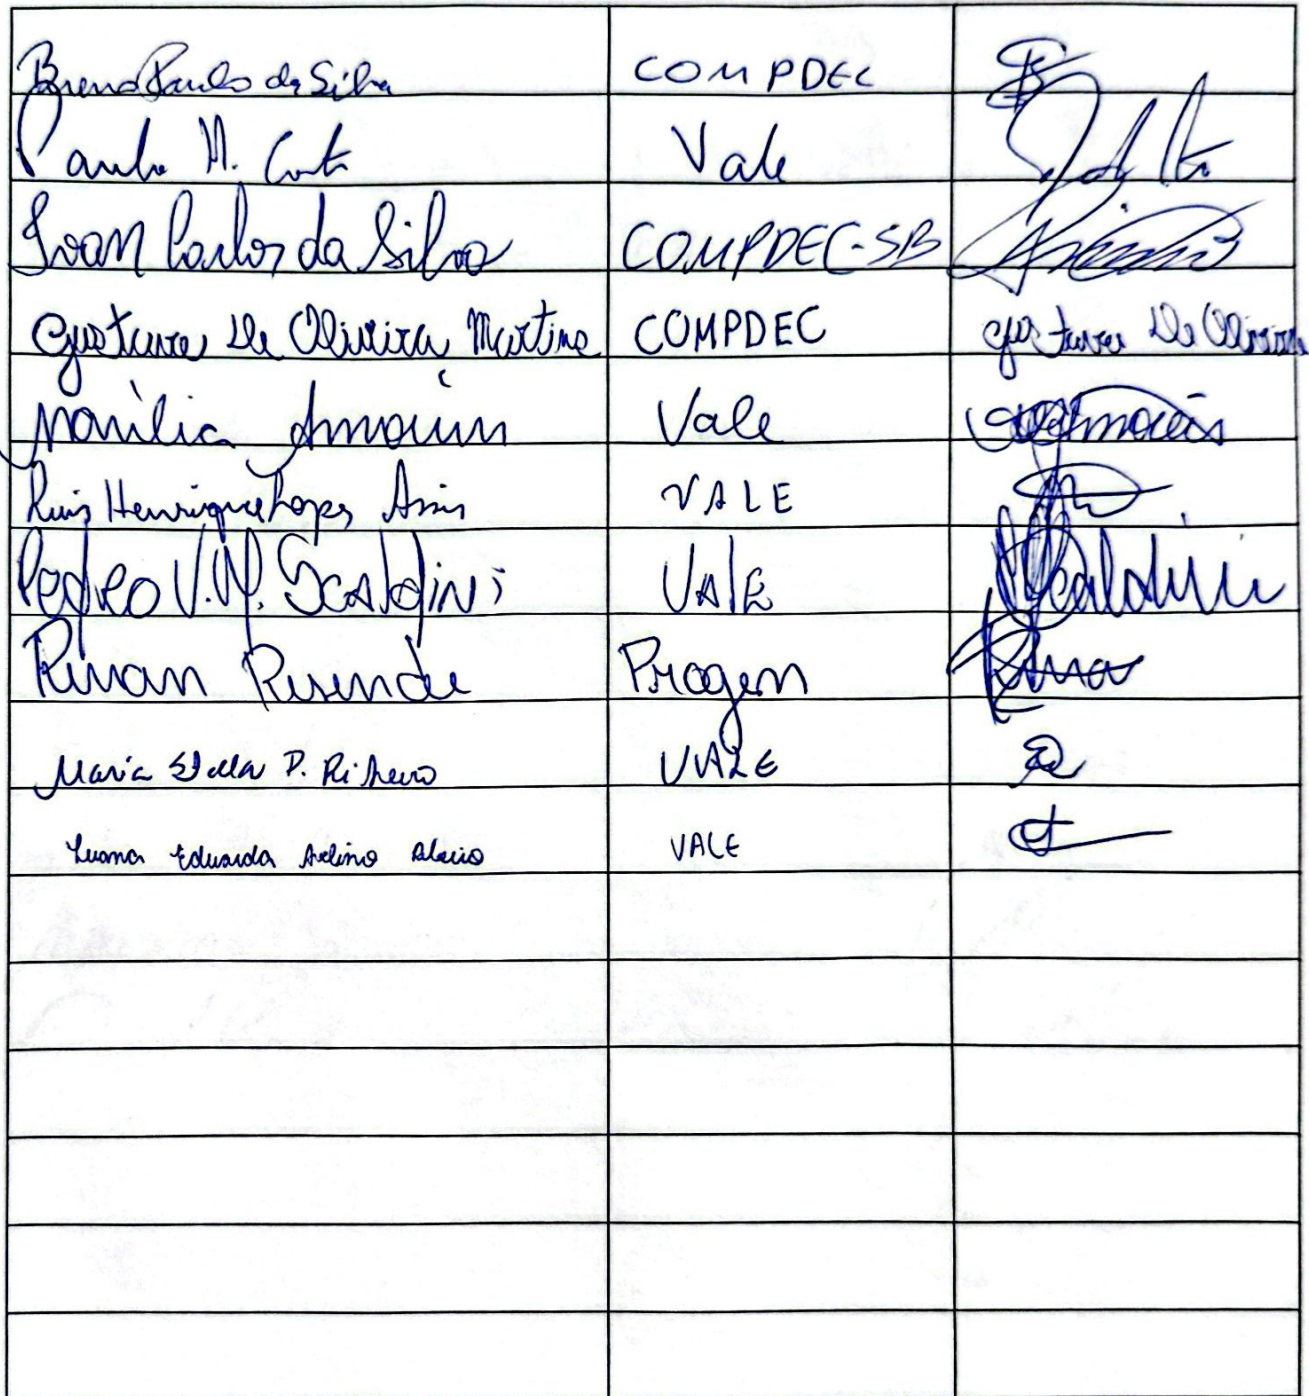 Breno Paulo da Silva COMPDEC
Paulo H. Costa Vale
Ivan Carlos da Silva COMPDEC-SB
Gustavo De Oliveira Martins COMPDEC Gustavo De Oliveira
Marília Amorim Vale Amorim
Luis Henrique Lopes Assis VALE
Pedro V.M. Scaldini VALE Scaldini
Rivan Resende Progen
Maria Stella P. Ribeiro VALE
Luana Eduarda Avelino VALE